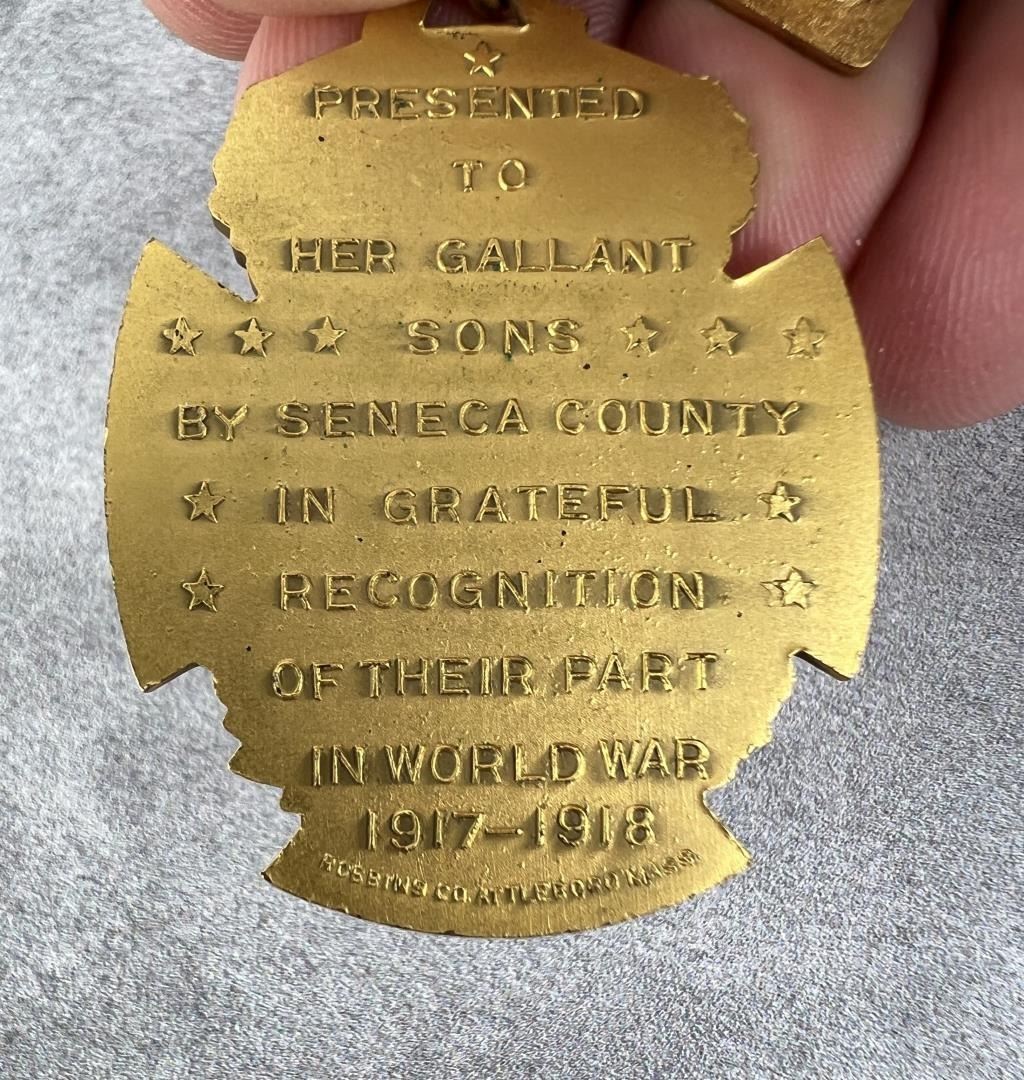 ★
PRESENTED
TO
HER GALLANT
★ ★ ★ SONS ★ ★ ★
BY SENECA COUNTY
★ IN GRATEFUL ★
★ RECOGNITION ★
OF THEIR PART
IN WORLD WAR
1917-1918
ROBBINS CO. ATTLEBORO MASS.